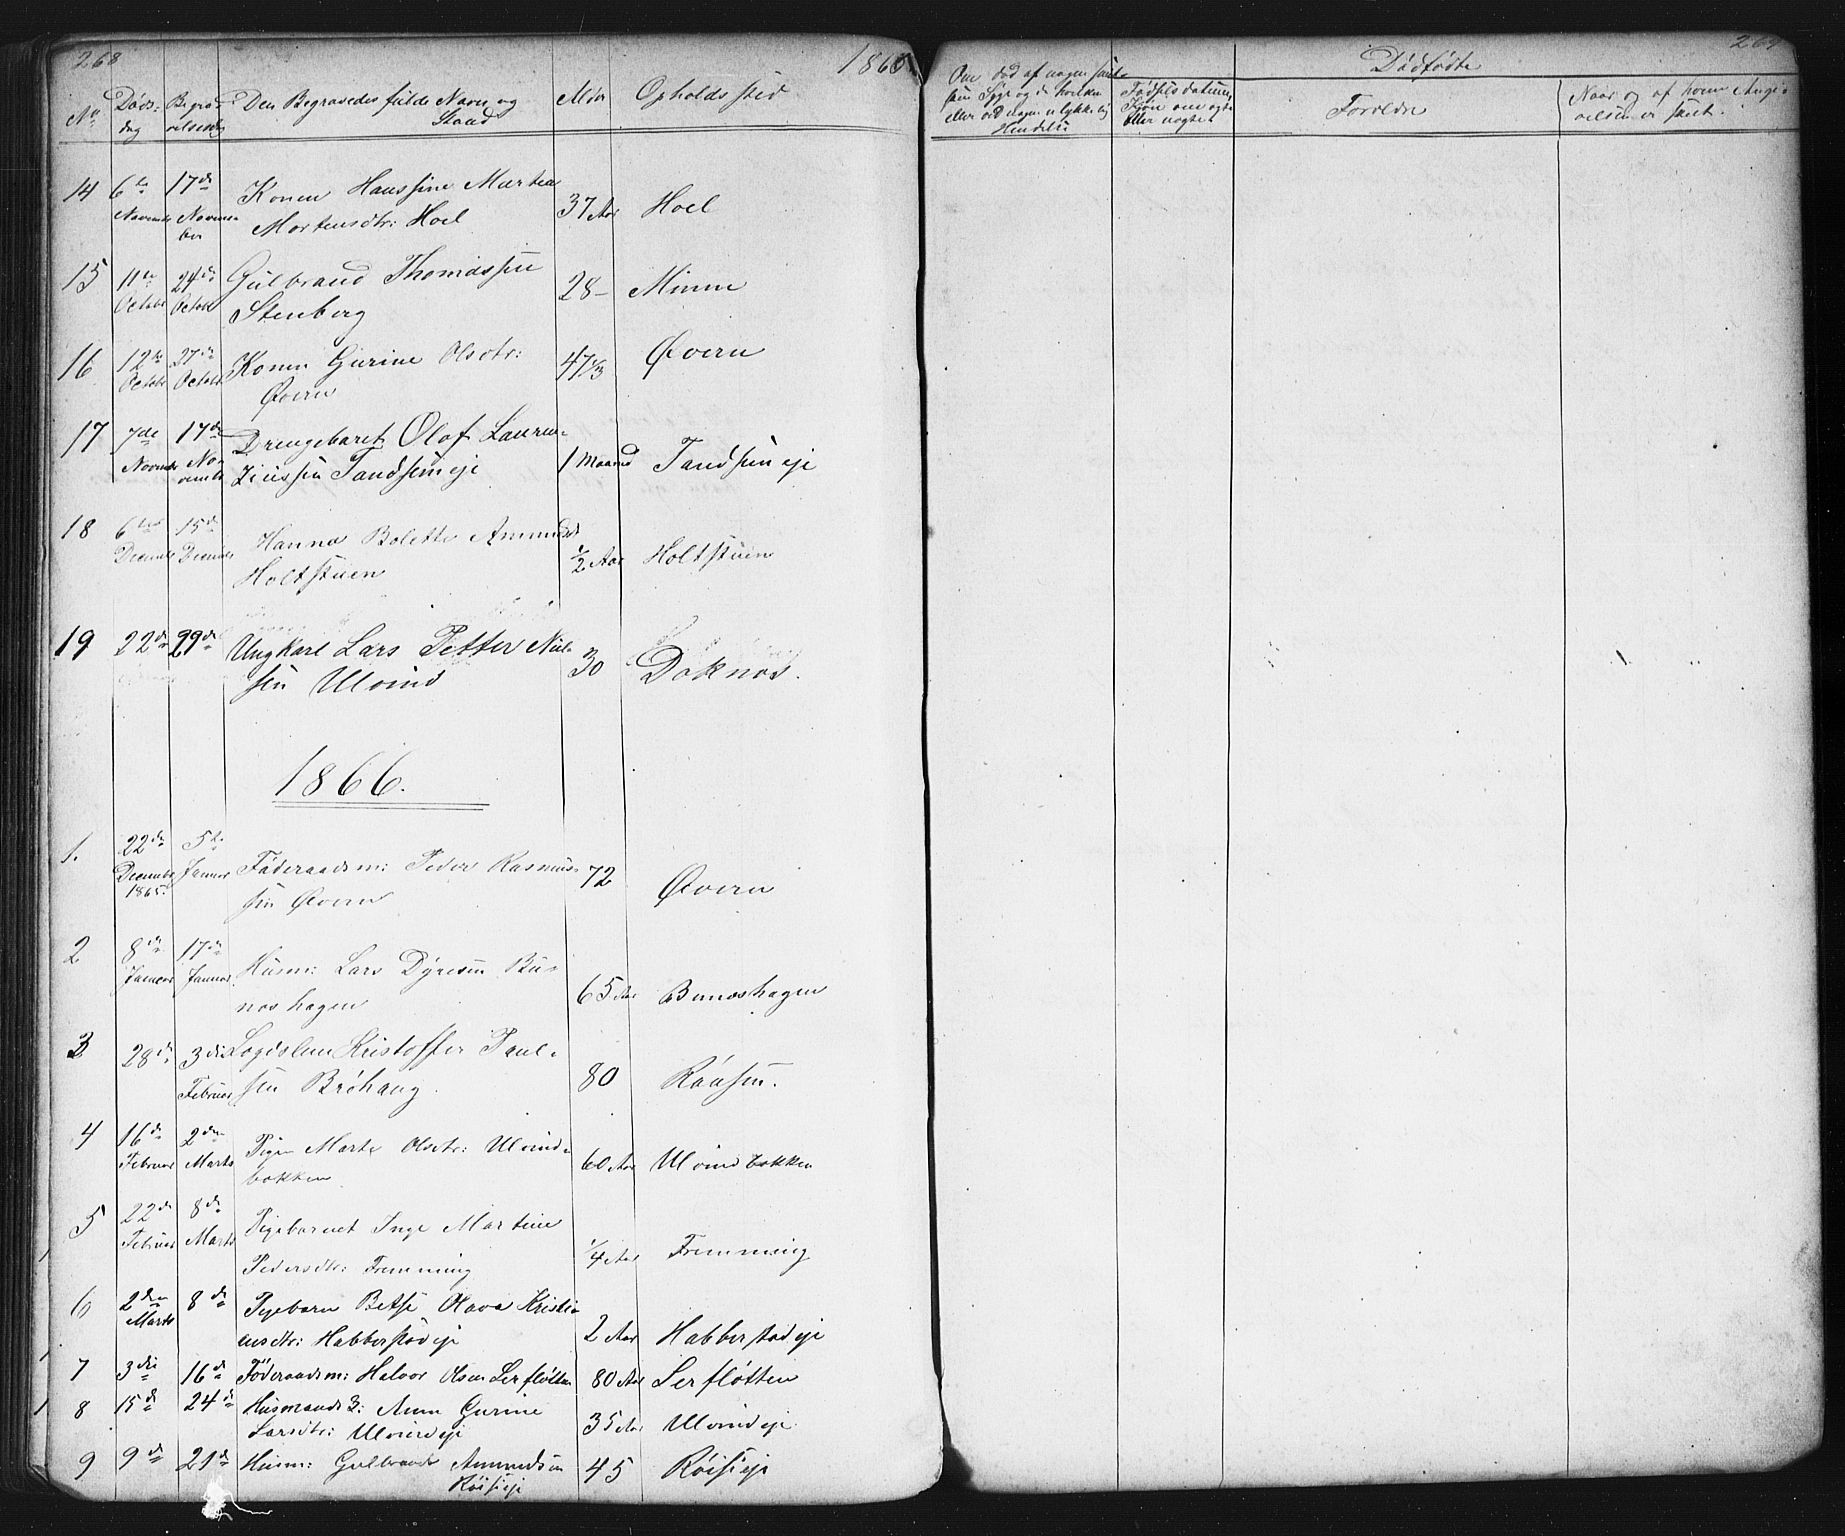 268
1865
No
Døds-
dag
Begra-
velsesdag
Den Begravedes fulde Navn og
Stand
Alder
Opholdssted
14 6te
November
17de
Novem-
ber
Konen Hanssine Martea
Mortensdtr: Hoel
37 Aar
Hoel
15 11te
October
24de
October
Gulbrand Thomassen
Stenberg
28 –
Minne
16 12te
October
27de
October
Konen Gurine Olsdtr:
Øvern
47 1/3
Øvern
17 7de
Novembr
17de
No-
vembr
Drengebarnet Olaf Lauren-
ziussen Tandseneje
1 Maaned
Tandseneje
18 6te
Decembr
15de
Decembr
Hanna Bolette Ammundsd
Holtstuen
1/2 Aar
Holtstuen
19 22de 29de
Ungkarl Lars Petter Niel-
sen Ulvind
30
Doknos.
1866.
1. 22de
December
1865.
5te
Januar
Føderaadsm: Peder Rasmus-
sen Øvern
72
Øvern
2 8de
Januar
17de
Januar
Husm: Lars Dyresen Bu-
noshagen
65 Aar
Bunoshagen
3 28de
3die
Februar
Logislem Kristoffer Paul-
sen Bröhaug.
80
Raasen.
4 16de
Februar
2den
Marts
Pigen Marte Olsdtr: Ulvind-
bakken
60 Aar
Ulvindbakken
5 22de
Februar
8de
Marts
Pigebarnet Inge Martine
Pedersdtr: Fremming
1/4 Aar
Fremming
6 2den
Marts
8de
Pigebarn Betse Olava Kristi-
ansdtr: Habberstadeje
2 Aar
Habberstadeje
7 3die 16de Föderaadsm: Halvor Olsen Serfløtten 80 Aar Serfløtten
8 15de 24de Husmands 3: Anne Gurine
Larsdtr: Ulvindeje
35 Aar
Ulvindeje
9 9de 21de Husm: Gulbrand Ammundsen
Röisieje
45
Röisieje
269
Om død af nogen smit-
som Syge og da hvilken
eller ved nogen ulykkelig
Hendelse
Dødfødte
Fødsels datum,
Kjøn om ægte
eller uægte.
Foreldre
Naar og af hvem Angi-
velsen er skeet.